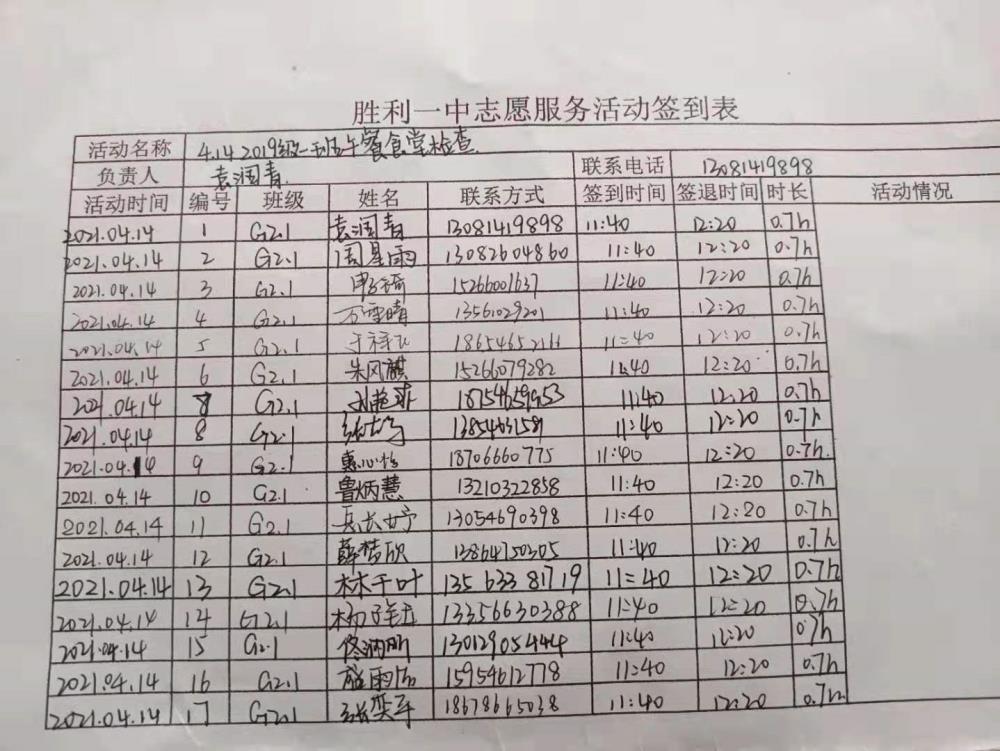 胜利一中志愿服务活动签到表
活动名称 4.14 2019级一班午餐食堂检查
负责人 袁润青 联系电话 13081419898
活动时间 编号 班级 姓名 联系方式 签到时间 签退时间 时长 活动情况
2021.04.14 1 G2.1 袁润青 13081419898 11:40 12:20 0.7h
2021.04.14 2 G2.1 周星雨 13082604860 11:40 12:20 0.7h
2021.04.14 3 G2.1 15266001637 11:40 12:20 0.7h
2021.04.14 4 G2.1 万雪晴 13561029201 11:40 12:20 0.7h
2021.04.14 5 G2.1 11:40 12:20 0.7h
2021.04.14 6 G2.1 朱风麒 15266079282 11:40 12:20 0.7h
2021.04.14 G2.1 11:40 12:20 0.7h
2021.04.14 8 G2.1 11:40 12:20 0.7h
2021.04.14 9 G2.1 惠心怡 18706660775 11:40 12:20 0.7h
2021.04.14 10 G2.1 鲁炳慧 13210322858 11:40 12:20 0.7h
2021.04.14 11 G2.1 13054690398 11:40 12:20 0.7h
2021.04.14 12 G2.1 薛梦欣 13864750305 11:40 12:20 0.7h
2021.04.14 13 G2.1 林千叶 13563381719 11:40 12:20 0.7h
2021.04.14 14 G2.1 13356630388 11:40 12:20 0.7h
2021.04.14 15 G2.1 13012905444 11:40 12:20 0.7h
2021.04.14 16 G2.1 15954612778 11:40 12:20 0.7h
2021.04.14 17 G2.1 18678665038 11:40 12:20 0.7h